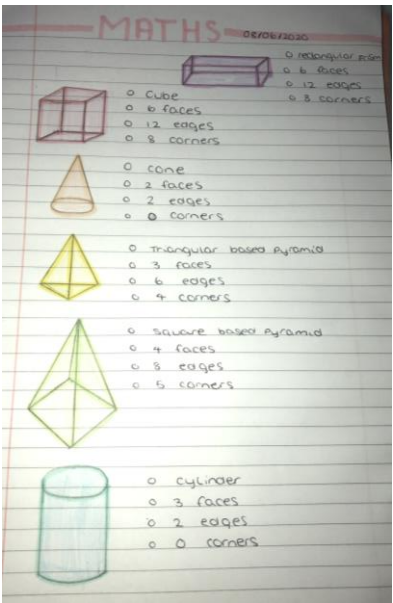 MATHS
08/06/2020
o rectangular prism
o 6 faces
o 12 edges
o 8 corners
o Cube
o 6 faces
o 12 edges
o 8 corners
o cone
o 2 faces
o 2 edges
o 0 corners
o Triangular based Pyramid
o 3 faces
o 6 edges
o 4 corners
o Square based Pyramid
o 4 faces
o 8 edges
o 5 corners
o Cylinder
o 3 faces
o 2 edges
o 0 corners